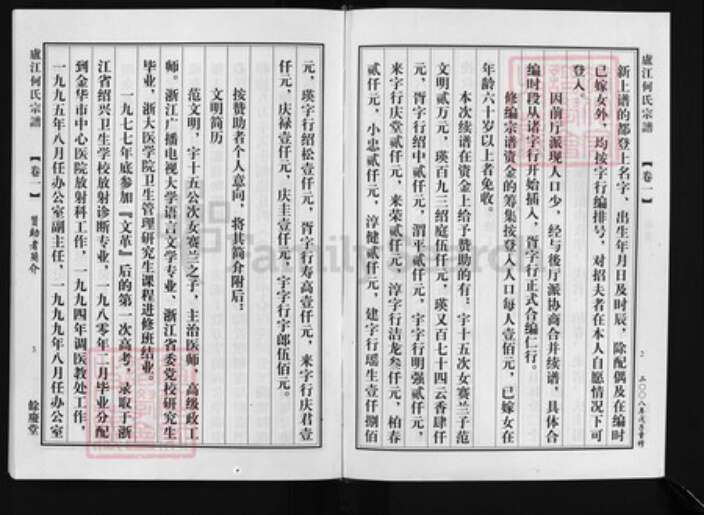 廬江何氏宗譜
【卷一】
2
二〇〇八年戊子重修
新上谱的都登上名字、出生年月日及时辰，除配偶及在编时
已嫁女外，均按字行编排号，对招夫者在本人自愿情况下可
登入。
因前厅派现人口少，经与後厅派协商合并续谱，具体合
编时段从诸字行开始插入，胥字行正式合编仁行。
修编宗谱资金的筹集按登入人口每人壹佰元，已嫁女在
年龄六十岁以上者免收。
本次续谱在资金上给予赞助的有：宇十五次女赛兰子范
文明贰万元，瑛百九三绍庭伍仟元，瑛又百七十四云香肆仟
元，胥字行绍中贰仟元，渭平贰仟元，宇字行明强贰仟元，
来字行庆堂贰仟元，来荣贰仟元，淳字行洁龙叁仟元，柏春
贰仟元，小忠贰仟元，淳健贰仟元，建字行瑶生壹仟捌佰
元，瑛字行绍松壹仟元，胥字行寿高壹仟元，来字行庆君壹
仟元，庆禄壹仟元，庆圭壹仟元，宇字行宇郎伍佰元。
按赞助者个人意向，将其简介附后：
文明简历
范文明，宇十五公次女赛兰之子，主治医师，高级政工
师。浙江广播电视大学语言文学专业、浙江省委党校研究生
毕业，浙大医学院卫生管理研究生课程进修班结业。
一九七七年底参加『文革』后的第一次高考，录取于浙
江省绍兴卫生学校放射诊断专业，一九八〇年二月毕业分配
到金华市中心医院放射科工作，一九九四年调医教处工作，
一九九五年八月任办公室副主任，一九九九年八月任办公室
廬江何氏宗譜
【卷一】
赞助者简介
3
餘慶堂
FamilySearch